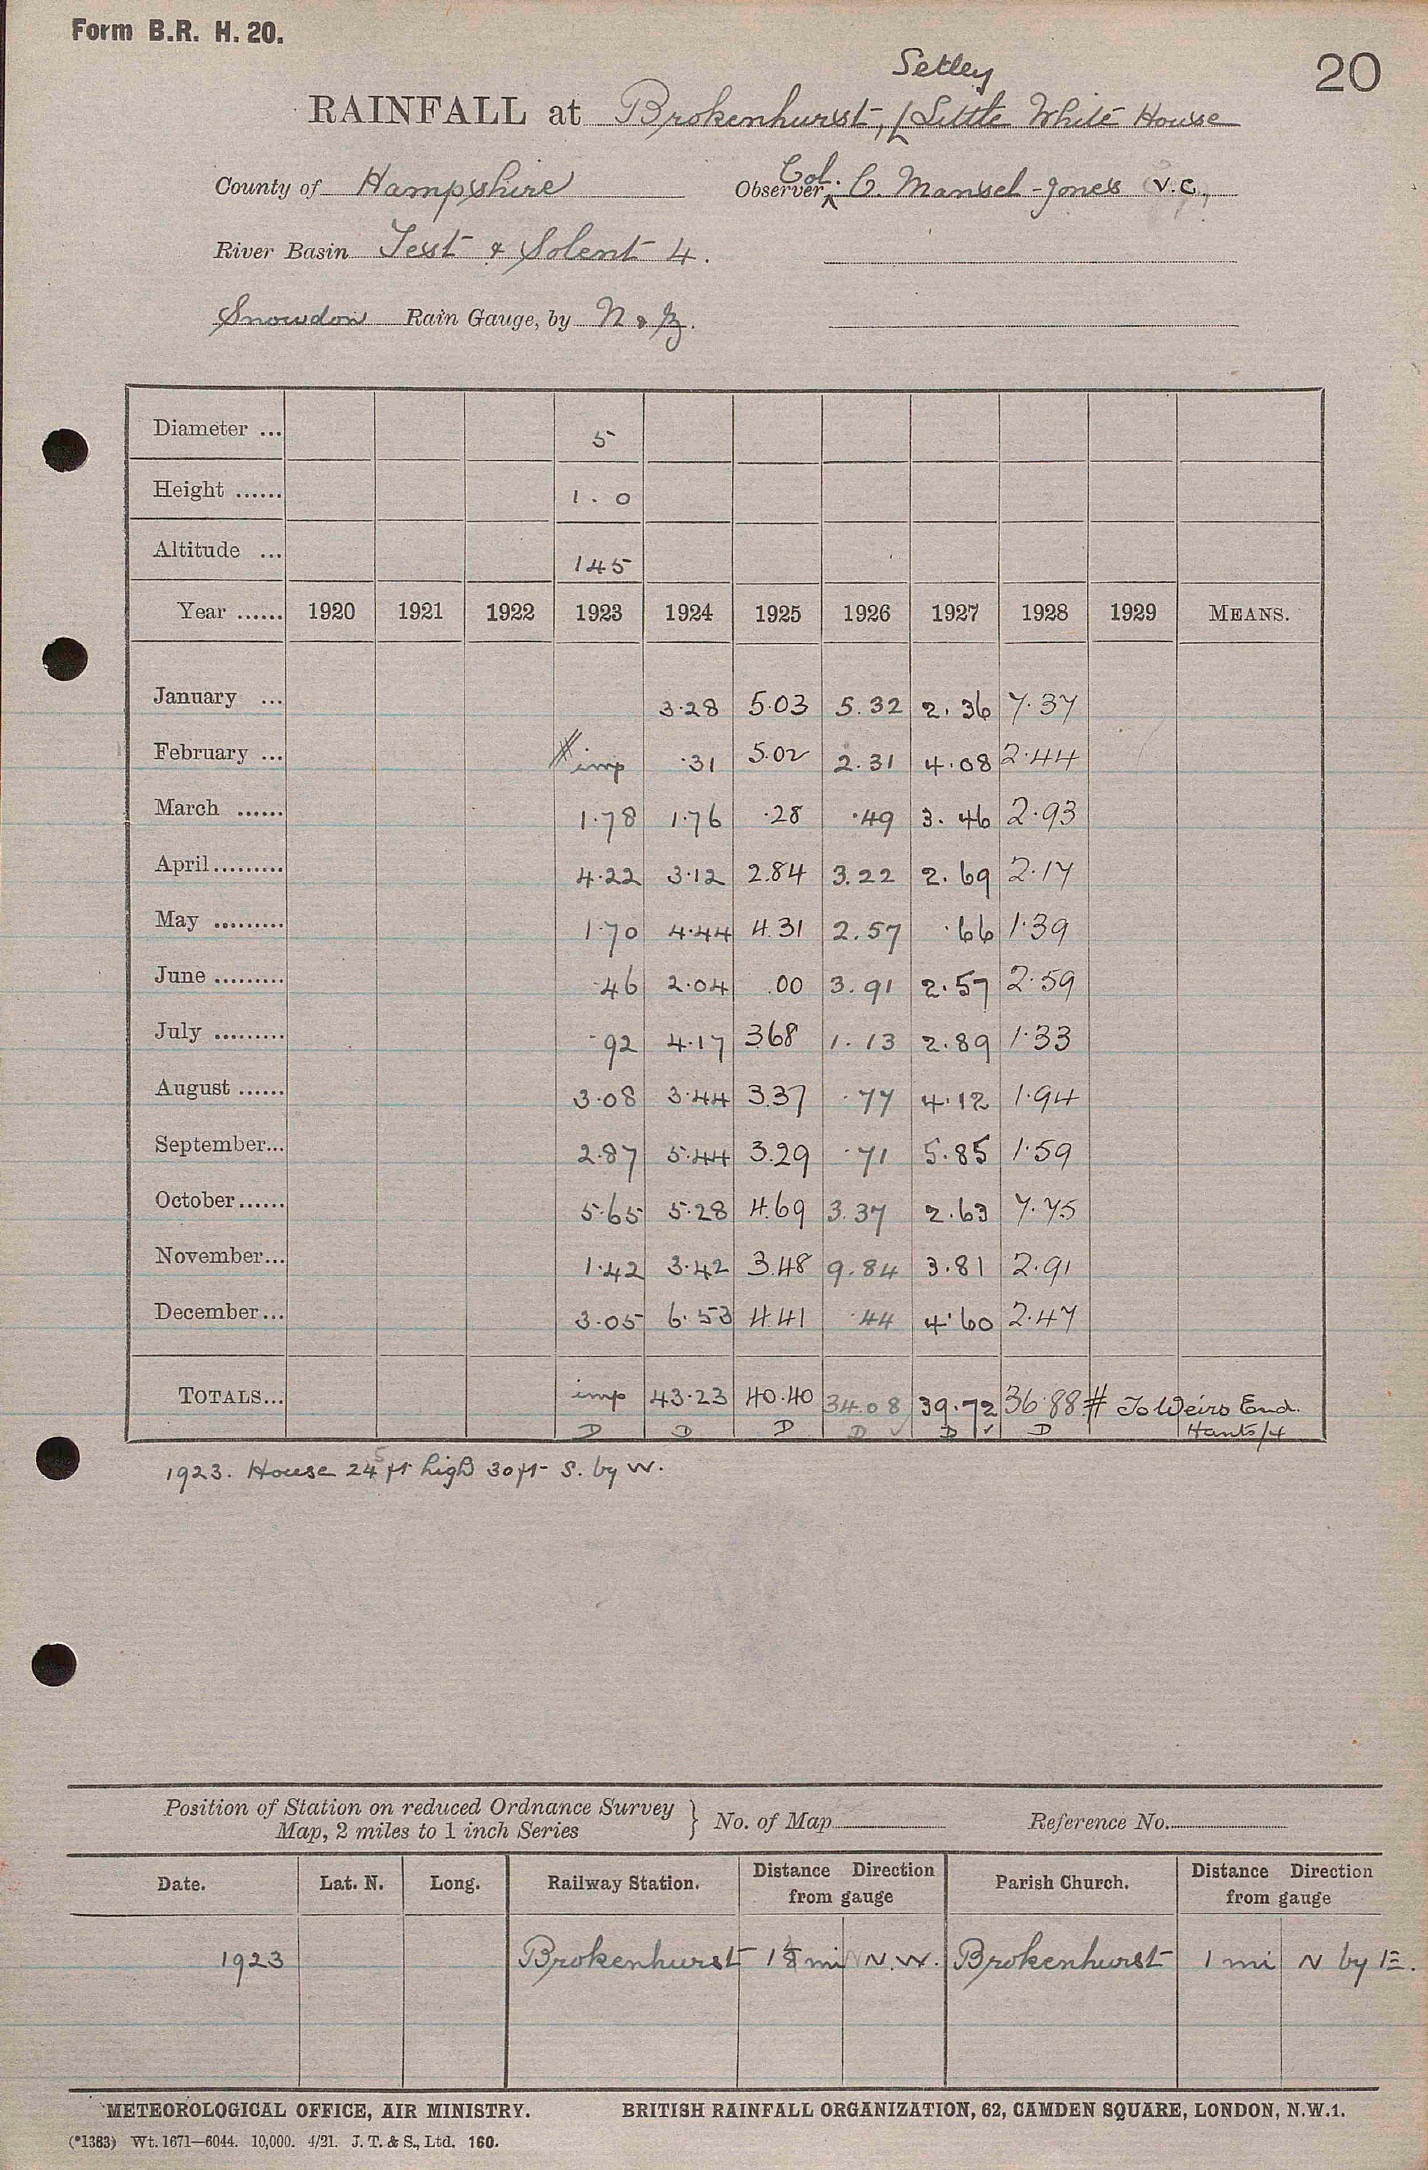 Form B.R. H. 20.
20
Setley
RAINFALL at Brokenhurst, Little White House
County of Hampshire Observer Col. C. Mansel-Jones V.C.,
River Basin Test & Solent 4.
Snowdon Rain Gauge, by N & Z.
Diameter ... 5
Height ...... 1.0
Altitude ... 145
Year ...... 1920 1921 1922 1923 1924 1925 1926 1927 1928 1929 MEANS.
January ... 3.28 5.03 5.32 2.36 7.37
February ... # imp .31 5.02 2.31 4.08 2.44
March ...... 1.78 1.76 .28 .49 3.46 2.93
April......... 4.22 3.12 2.84 3.22 2.69 2.17
May ......... 1.70 4.44 4.31 2.57 .66 1.39
June ......... .46 2.04 .00 3.91 2.57 2.59
July ......... .92 4.17 3.68 1.13 2.89 1.33
August ...... 3.08 3.44 3.37 .77 4.12 1.94
September... 2.87 5.44 3.29 .71 5.85 1.59
October...... 5.65 5.28 4.69 3.37 2.63 7.75
November... 1.42 3.42 3.48 9.84 3.81 2.91
December... 3.05 6.53 4.41 .44 4.60 2.47
TOTALS... imp 43.23 40.40 34.08 39.72 36.88 # To Weirs End.
D D D D ✓ D ✓ D Hants/4
1923. House 24 ft high 30 ft S. by W.
Position of Station on reduced Ordnance Survey
Map, 2 miles to 1 inch Series } No. of Map Reference No.
Date. Lat. N. Long. Railway Station. Distance Direction from gauge Parish Church. Distance Direction from gauge
1923 Brokenhurst mi N.W. Brokenhurst 1 mi N by E.
METEOROLOGICAL OFFICE, AIR MINISTRY. BRITISH RAINFALL ORGANIZATION, 62, CAMDEN SQUARE, LONDON, N.W.1.
(*1383) Wt. 1671—6044. 10,000. 4/21. J. T. & S., Ltd. 160.